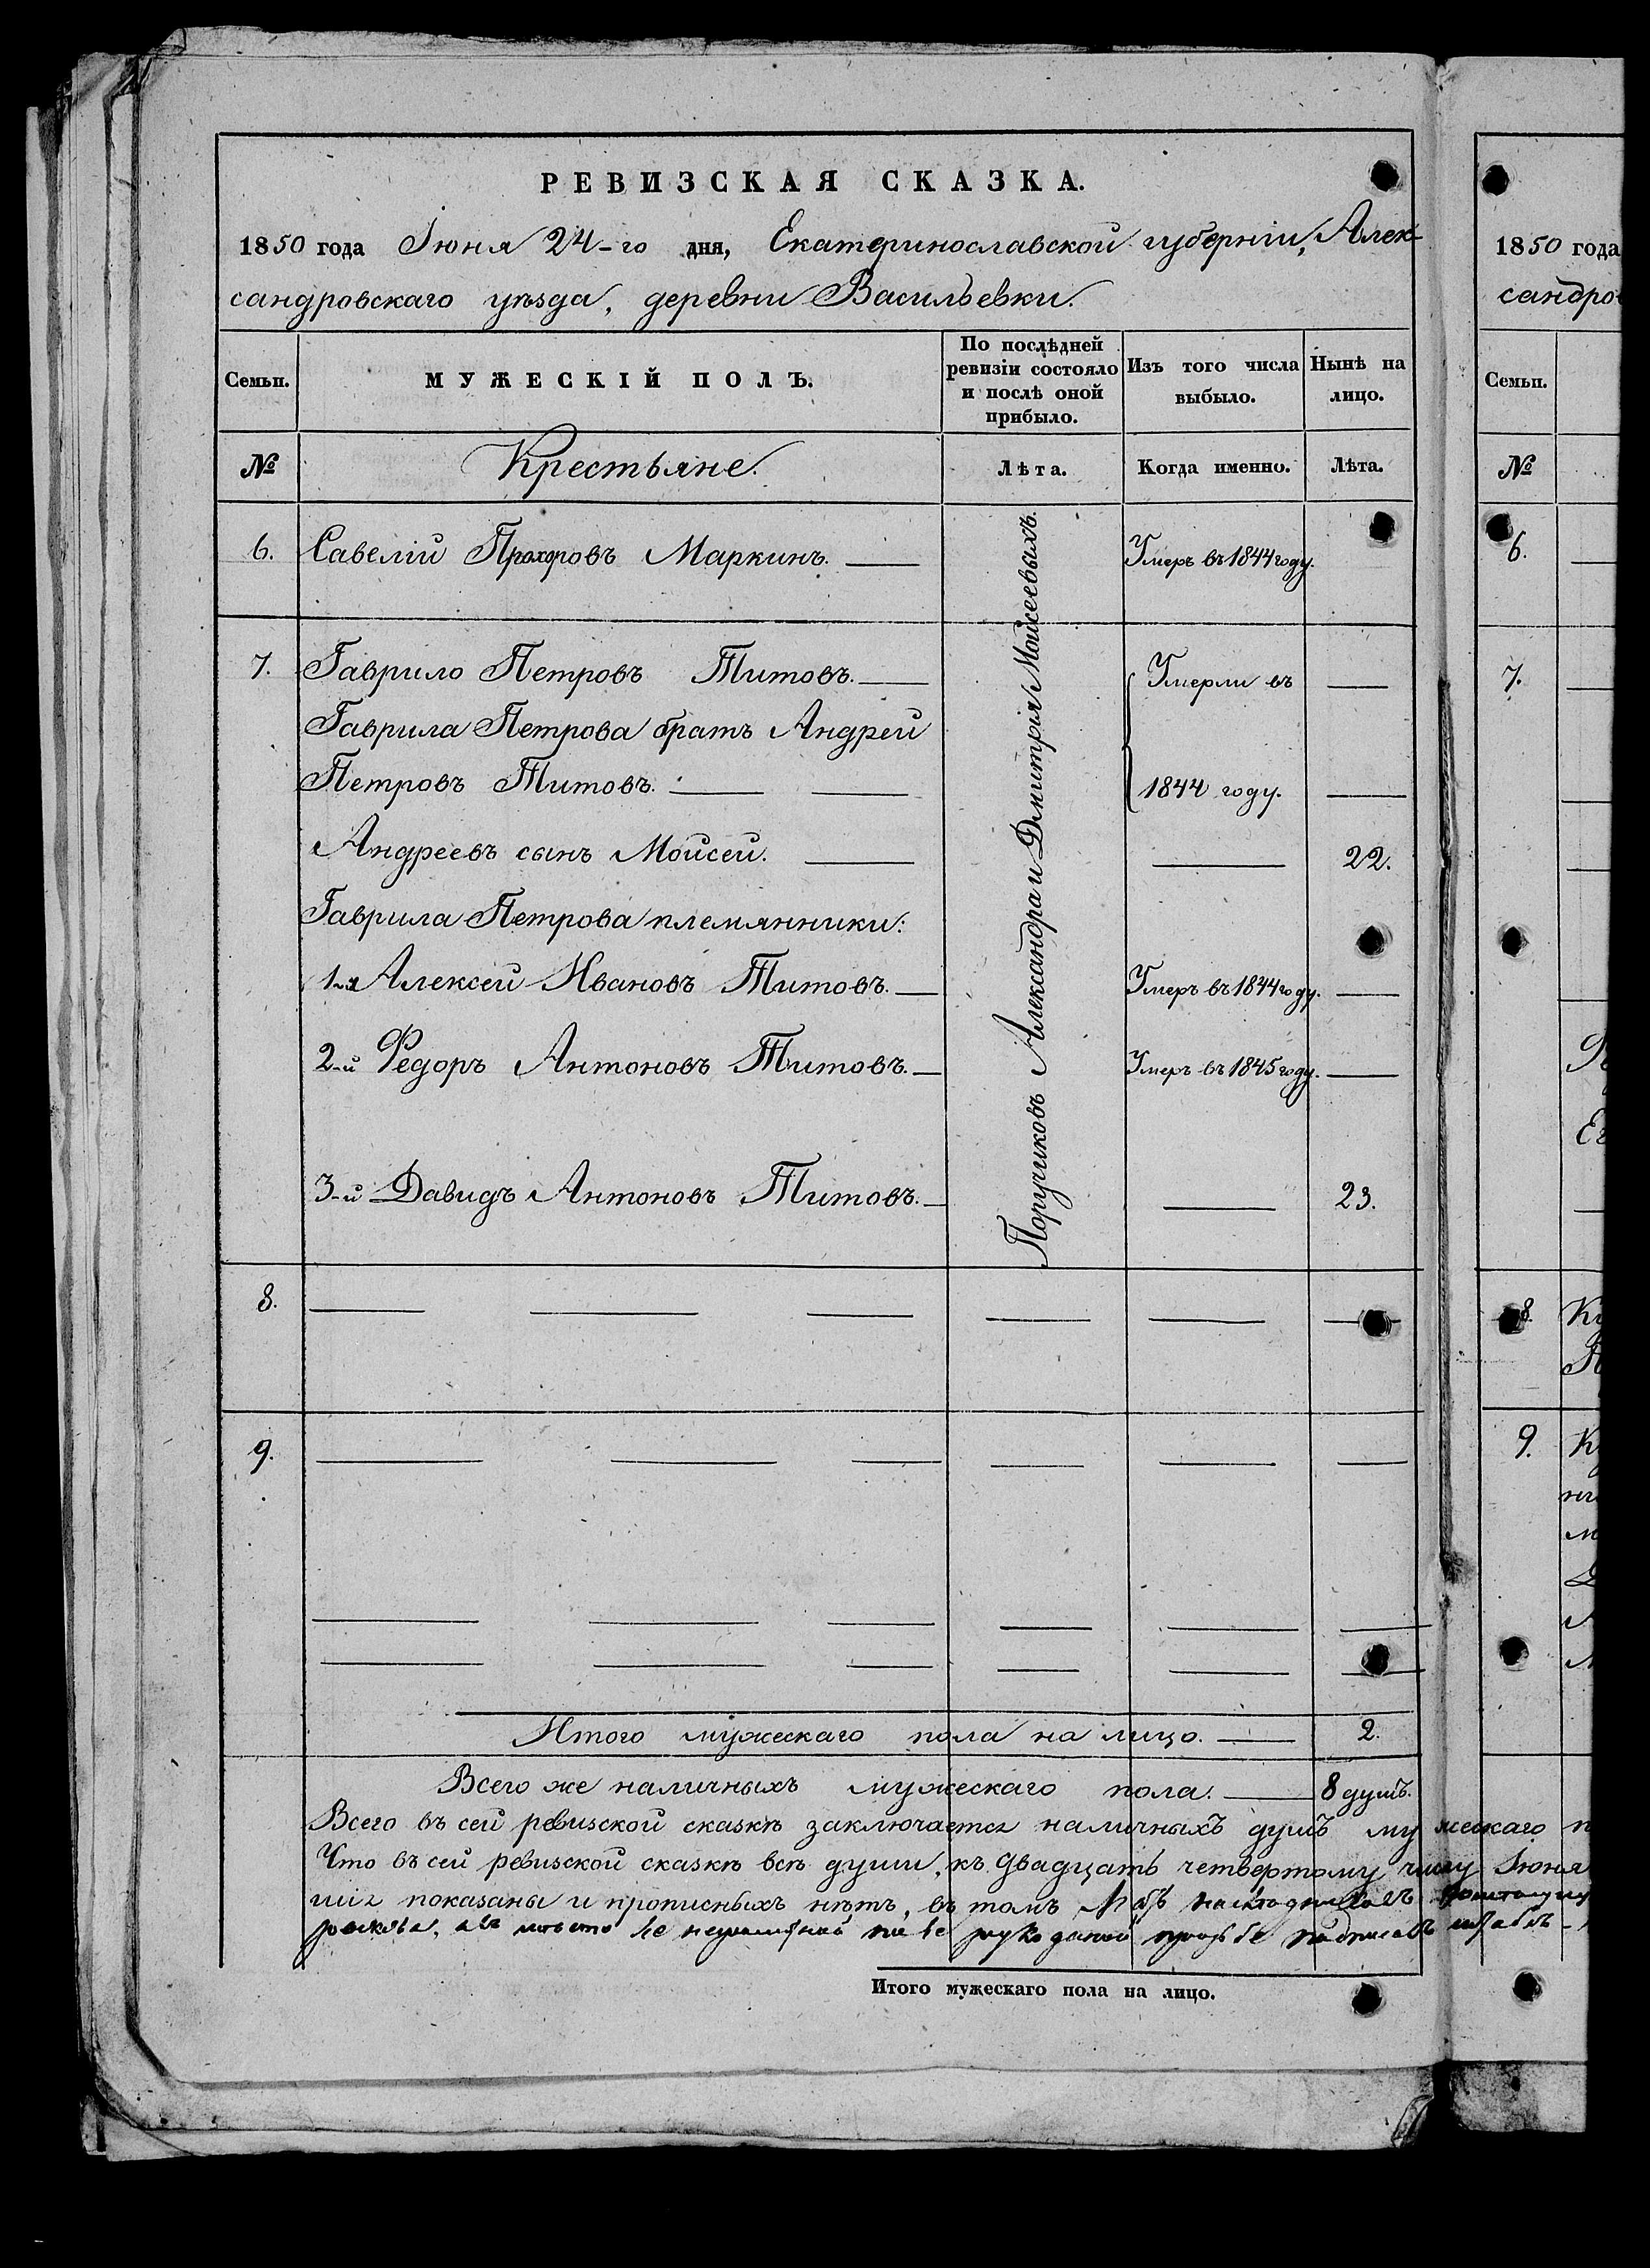 РЕВИЗСКАЯ СКАЗКА.
1850 года Іюня 24-го дня, Екатеринославской губерніи, Алек-
сандровскаго уѣзда, деревни Васильевки.
Семьи.
МУЖЕСКІЙ ПОЛЪ.
По послѣдней
ревизіи состояло
и послѣ оной
прибыло.
Изъ того числа
выбыло.
Нынѣ на
лицо.
№
Крестьяне.
Лѣта.
Когда именно.
Лѣта.
Поручиковъ Александра и Дмитрія Моисеевыхъ.
6. Савелій Прохоровъ Маркинъ. — Умеръ въ 1844 году.
7. Гаврило Петровъ Титовъ. — Умерли въ —
Гаврила Петрова братъ Андрей
Петровъ Титовъ. — — 1844 году. —
Андреевъ сынъ Моисей. — — 22.
Гаврила Петрова племянники:
1-й Алексей Ивановъ Титовъ. — Умеръ въ 1844 году. —
2-й Федоръ Антоновъ Титовъ. — Умеръ въ 1845 году. —
3-й Давидъ Антоновъ Титовъ. — — 23.
8. — — — — — —
9. — — — — — —
— — — — — —
— — — — — —
Итого мужескаго пола на лицо. — 2.
Всего же наличныхъ мужескаго пола. — 8 душъ.
Всего въ сей ревизской сказкѣ заключается наличныхъ душъ му жескаго
Что въ сей ревизской сказкѣ всѣ души, къ двадцать четвертому числу Іюня
показаны и прописныхъ нѣтъ, въ томъ
подписавъ
Итого мужескаго пола на лицо.
1850 года
сандро
Семьи.
№
6.
7.
8.
9.